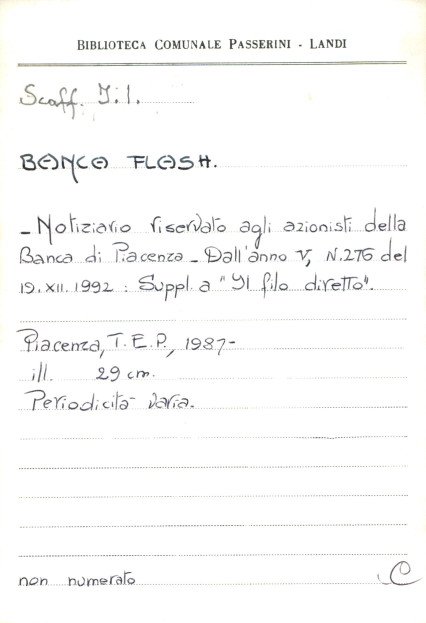 BIBLIOTECA COMUNALE PASSERINI - LANDI
Scaff. I.1.
BANCA FLASH.
- Notiziario riservato agli azionisti della
Banca di Piacenza - Dall'anno V, N.276 del
19.XII.1992 : Suppl. a "Il filo diretto".
Piacenza, T.E.P., 1987-
ill. 29 cm.
Periodicità varia.
non numerato C